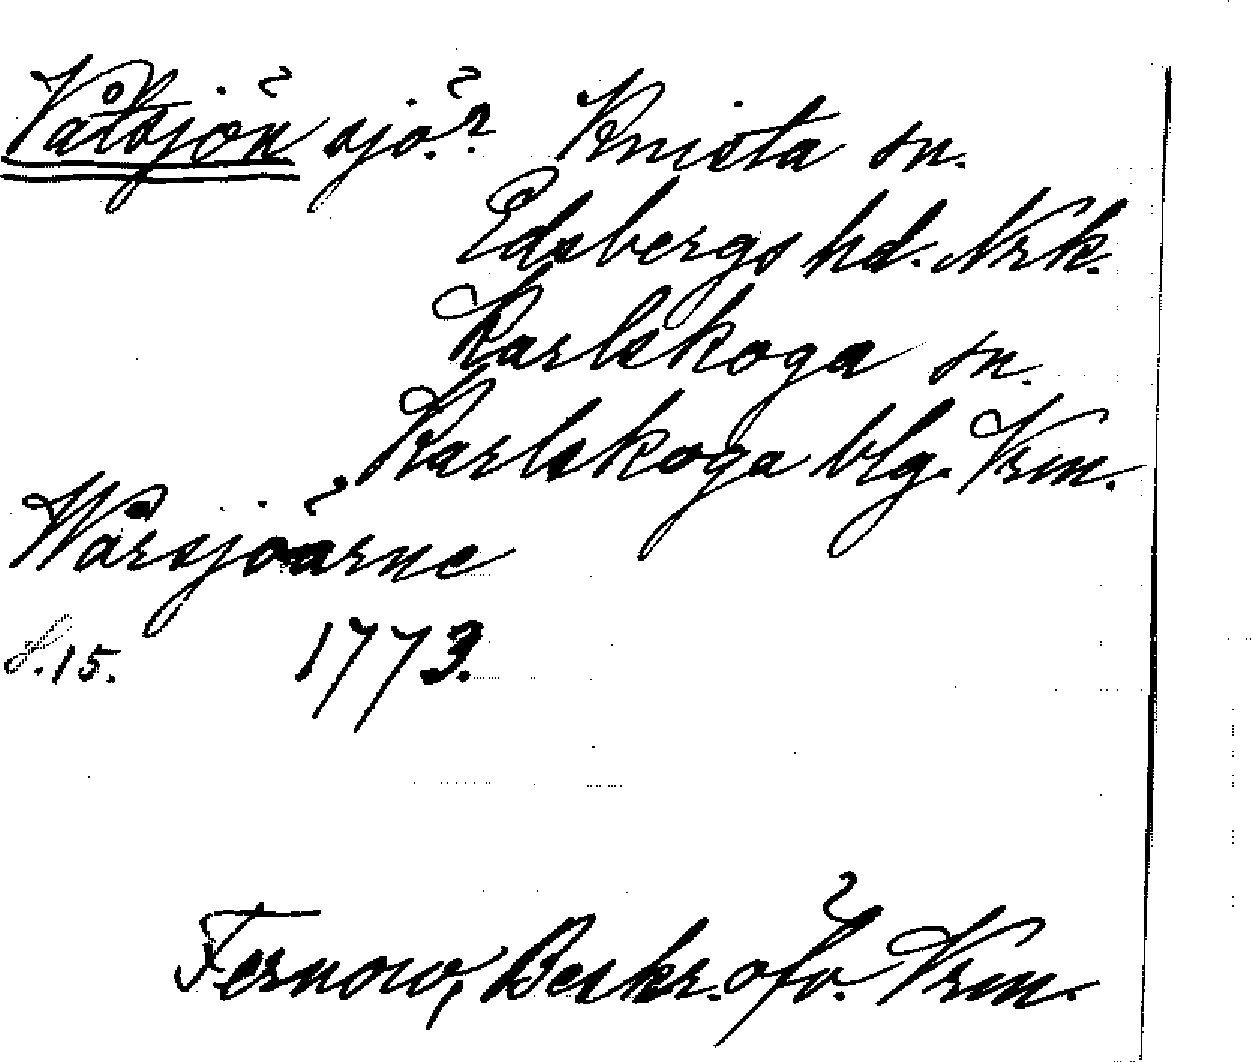 Våtsjön sjö.? Knista sn.
Edsbergs hd. Nrk.
Karlskoga sn.
Karlskoga blg. Vrm.
Wårsjöarne
s. 15. 1773.
Fernow, Beskr. öfv. Vrm.